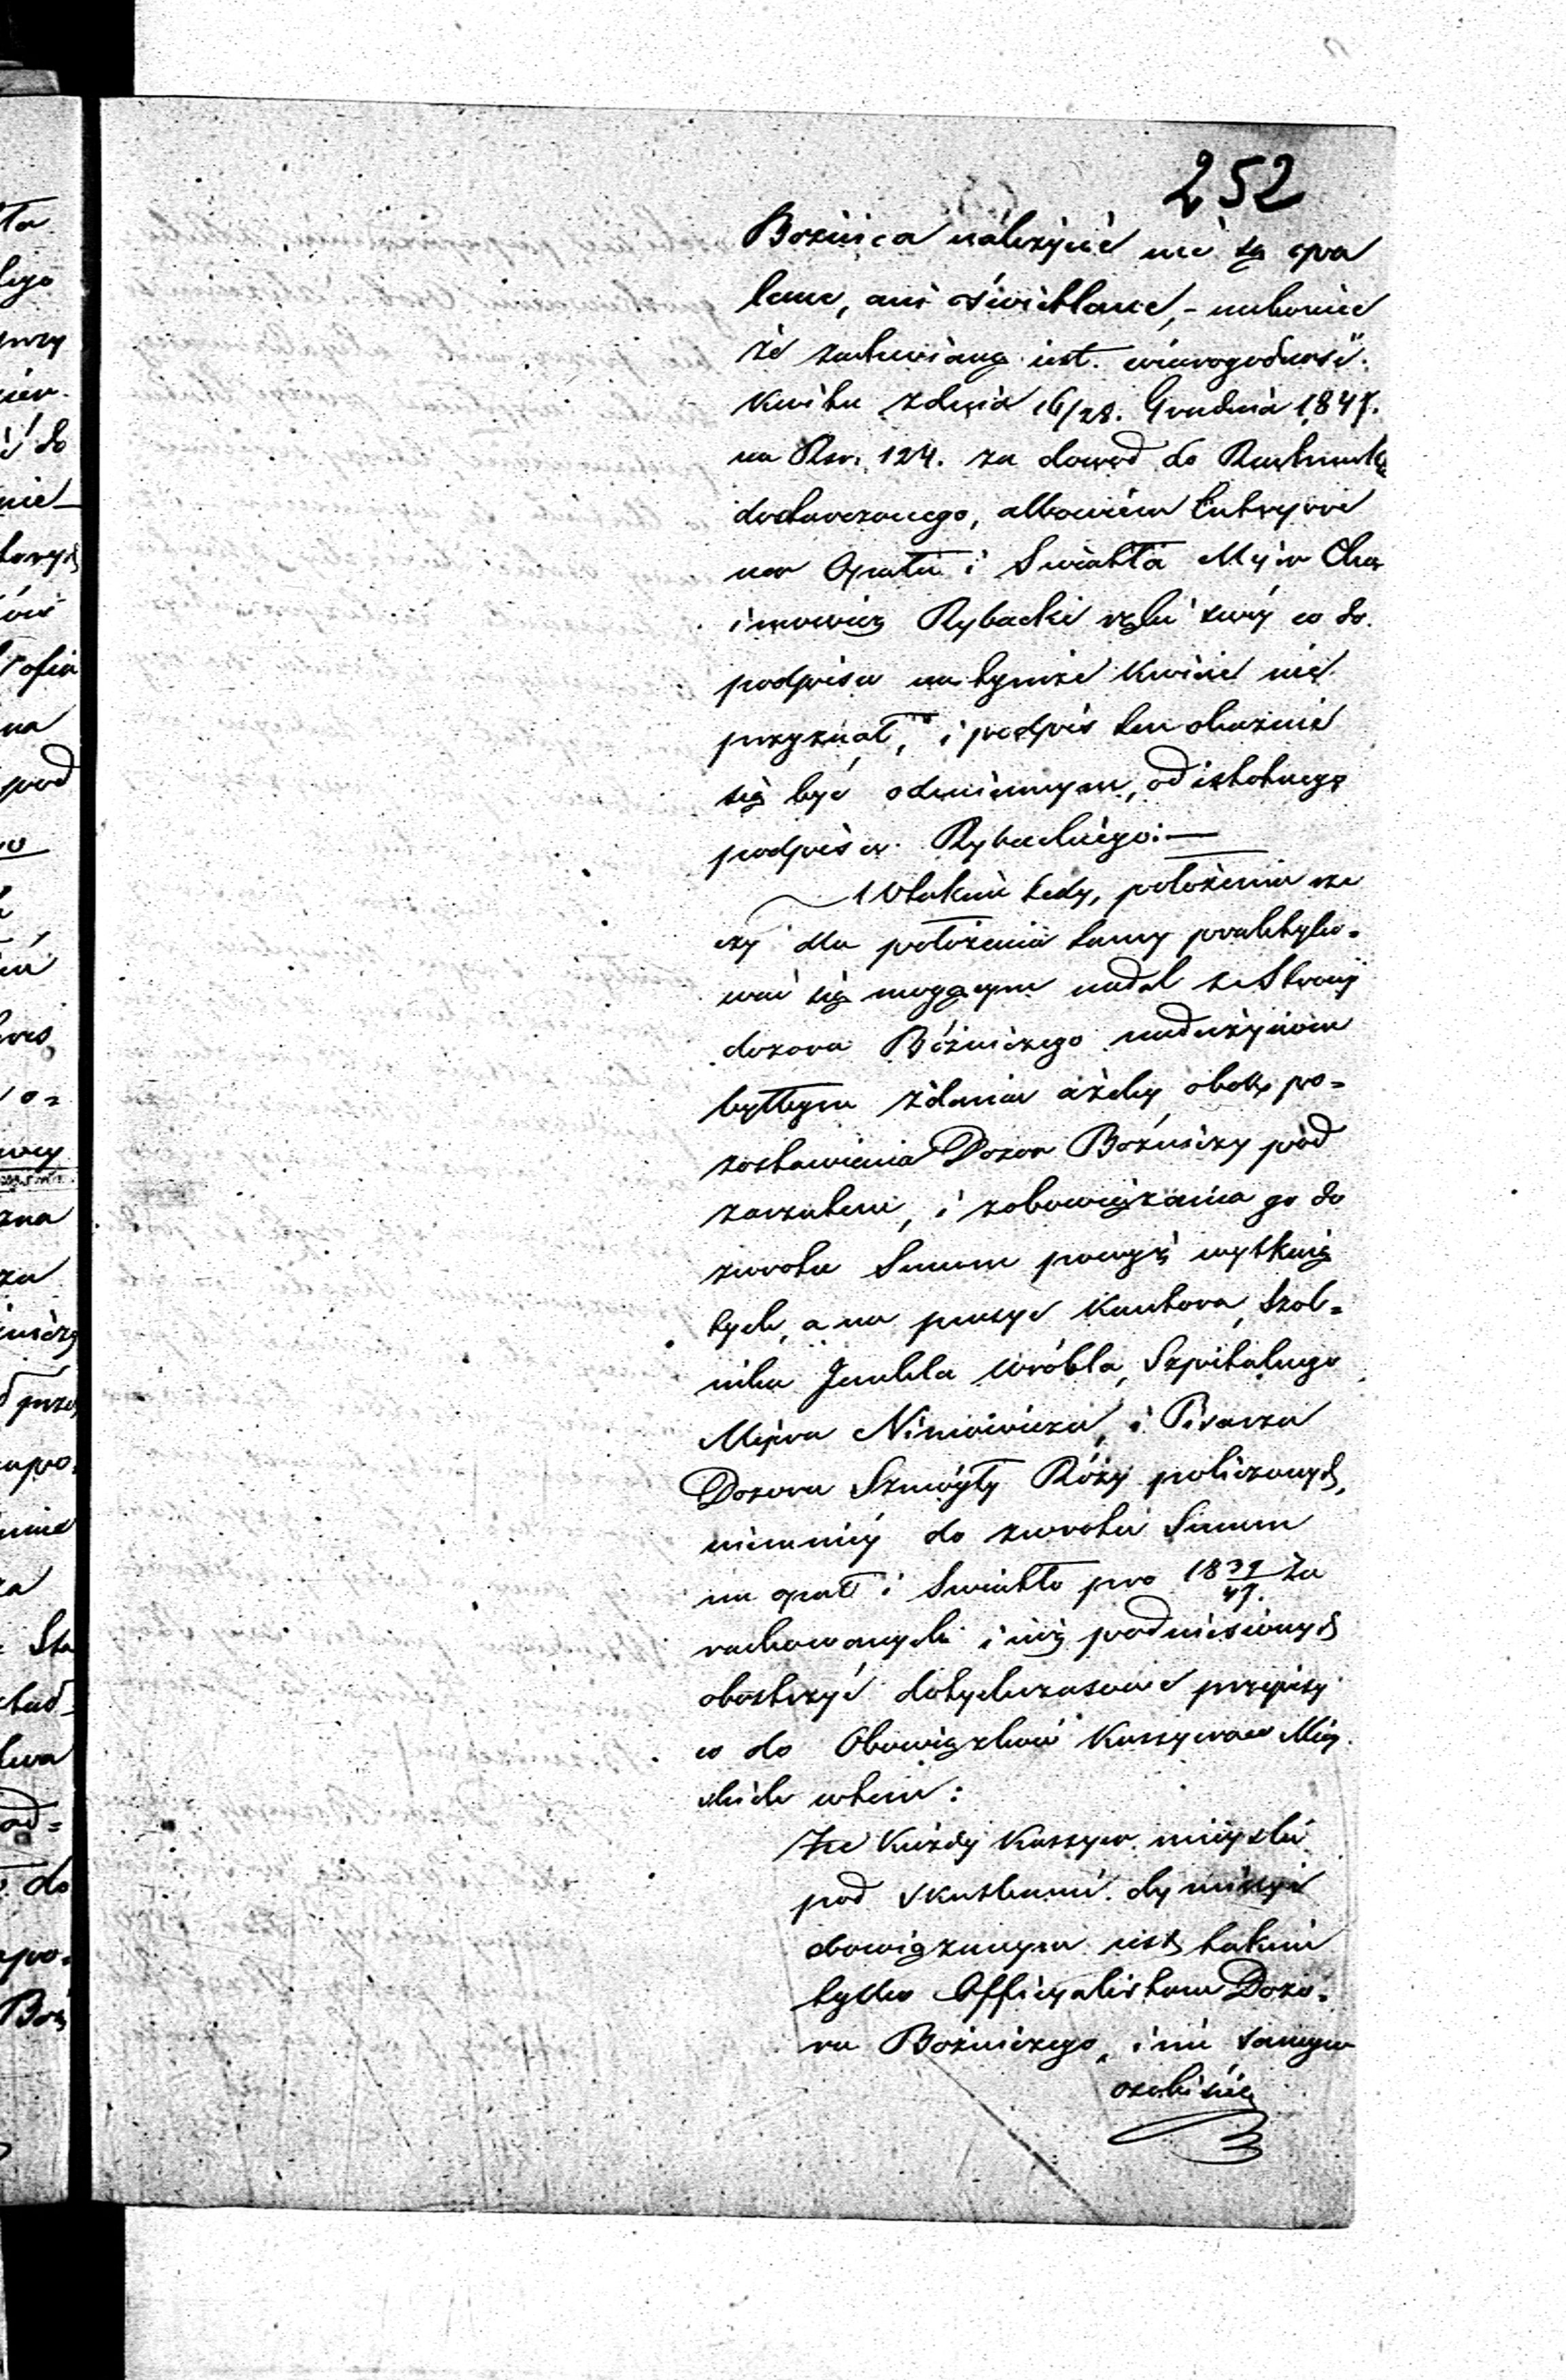 252
Boznica należycie nie są opa
lane, ani oświetlane, - nakoniec
że zachwianą jest wiarogodność
Kwitu zdnia 16/28. Grudnia 1847.
na Rsr. 124. za dowod do Rachunku
dostarczonego, albowiem Entrepre
ner Opału i Swiatła Mejer Cha
imowicz Rybacki ręki swéj co do
podpisu na tymże Kwicie nie
przyznał, i podpis ten okaznie
się być odmiennym, od istotnego
podpisu Rybackiego: —
W takim tedy, położeniu rze
czy dla położenia tamy praktyko=
wać się mogącym nadal ze Strony
dozoru Bóżniczego nadużyciom
byłbym zdania ażeby obok po=
zostawienia Dozoru Bożniczy pod
zarzutem, i zobowiązania go do
zwrotu Summ powyż wytknię
tych, a na pensye Kantora, Szkol=
nika Jankla Wróbla, Szpitalnego
Mejera Niemowicza, i Pisarza
Dozoru Szmoyły Róży policzonych,
niemniéj do zwrotu Summ
na opał i Swiatło pro 18 39/47. za
rachowanych i niż podniesionych
obostrzyć dotychczasowe przepisy
co do Obowiązków Kassyerow Miey
skich w tem:
Ze Każdy Kassyer mieyski
pod skutkami dymissyi
obowiązanym jest takim
tylko Officyalistom Dozo=
ru Bożniczego, i im samym
osobiście